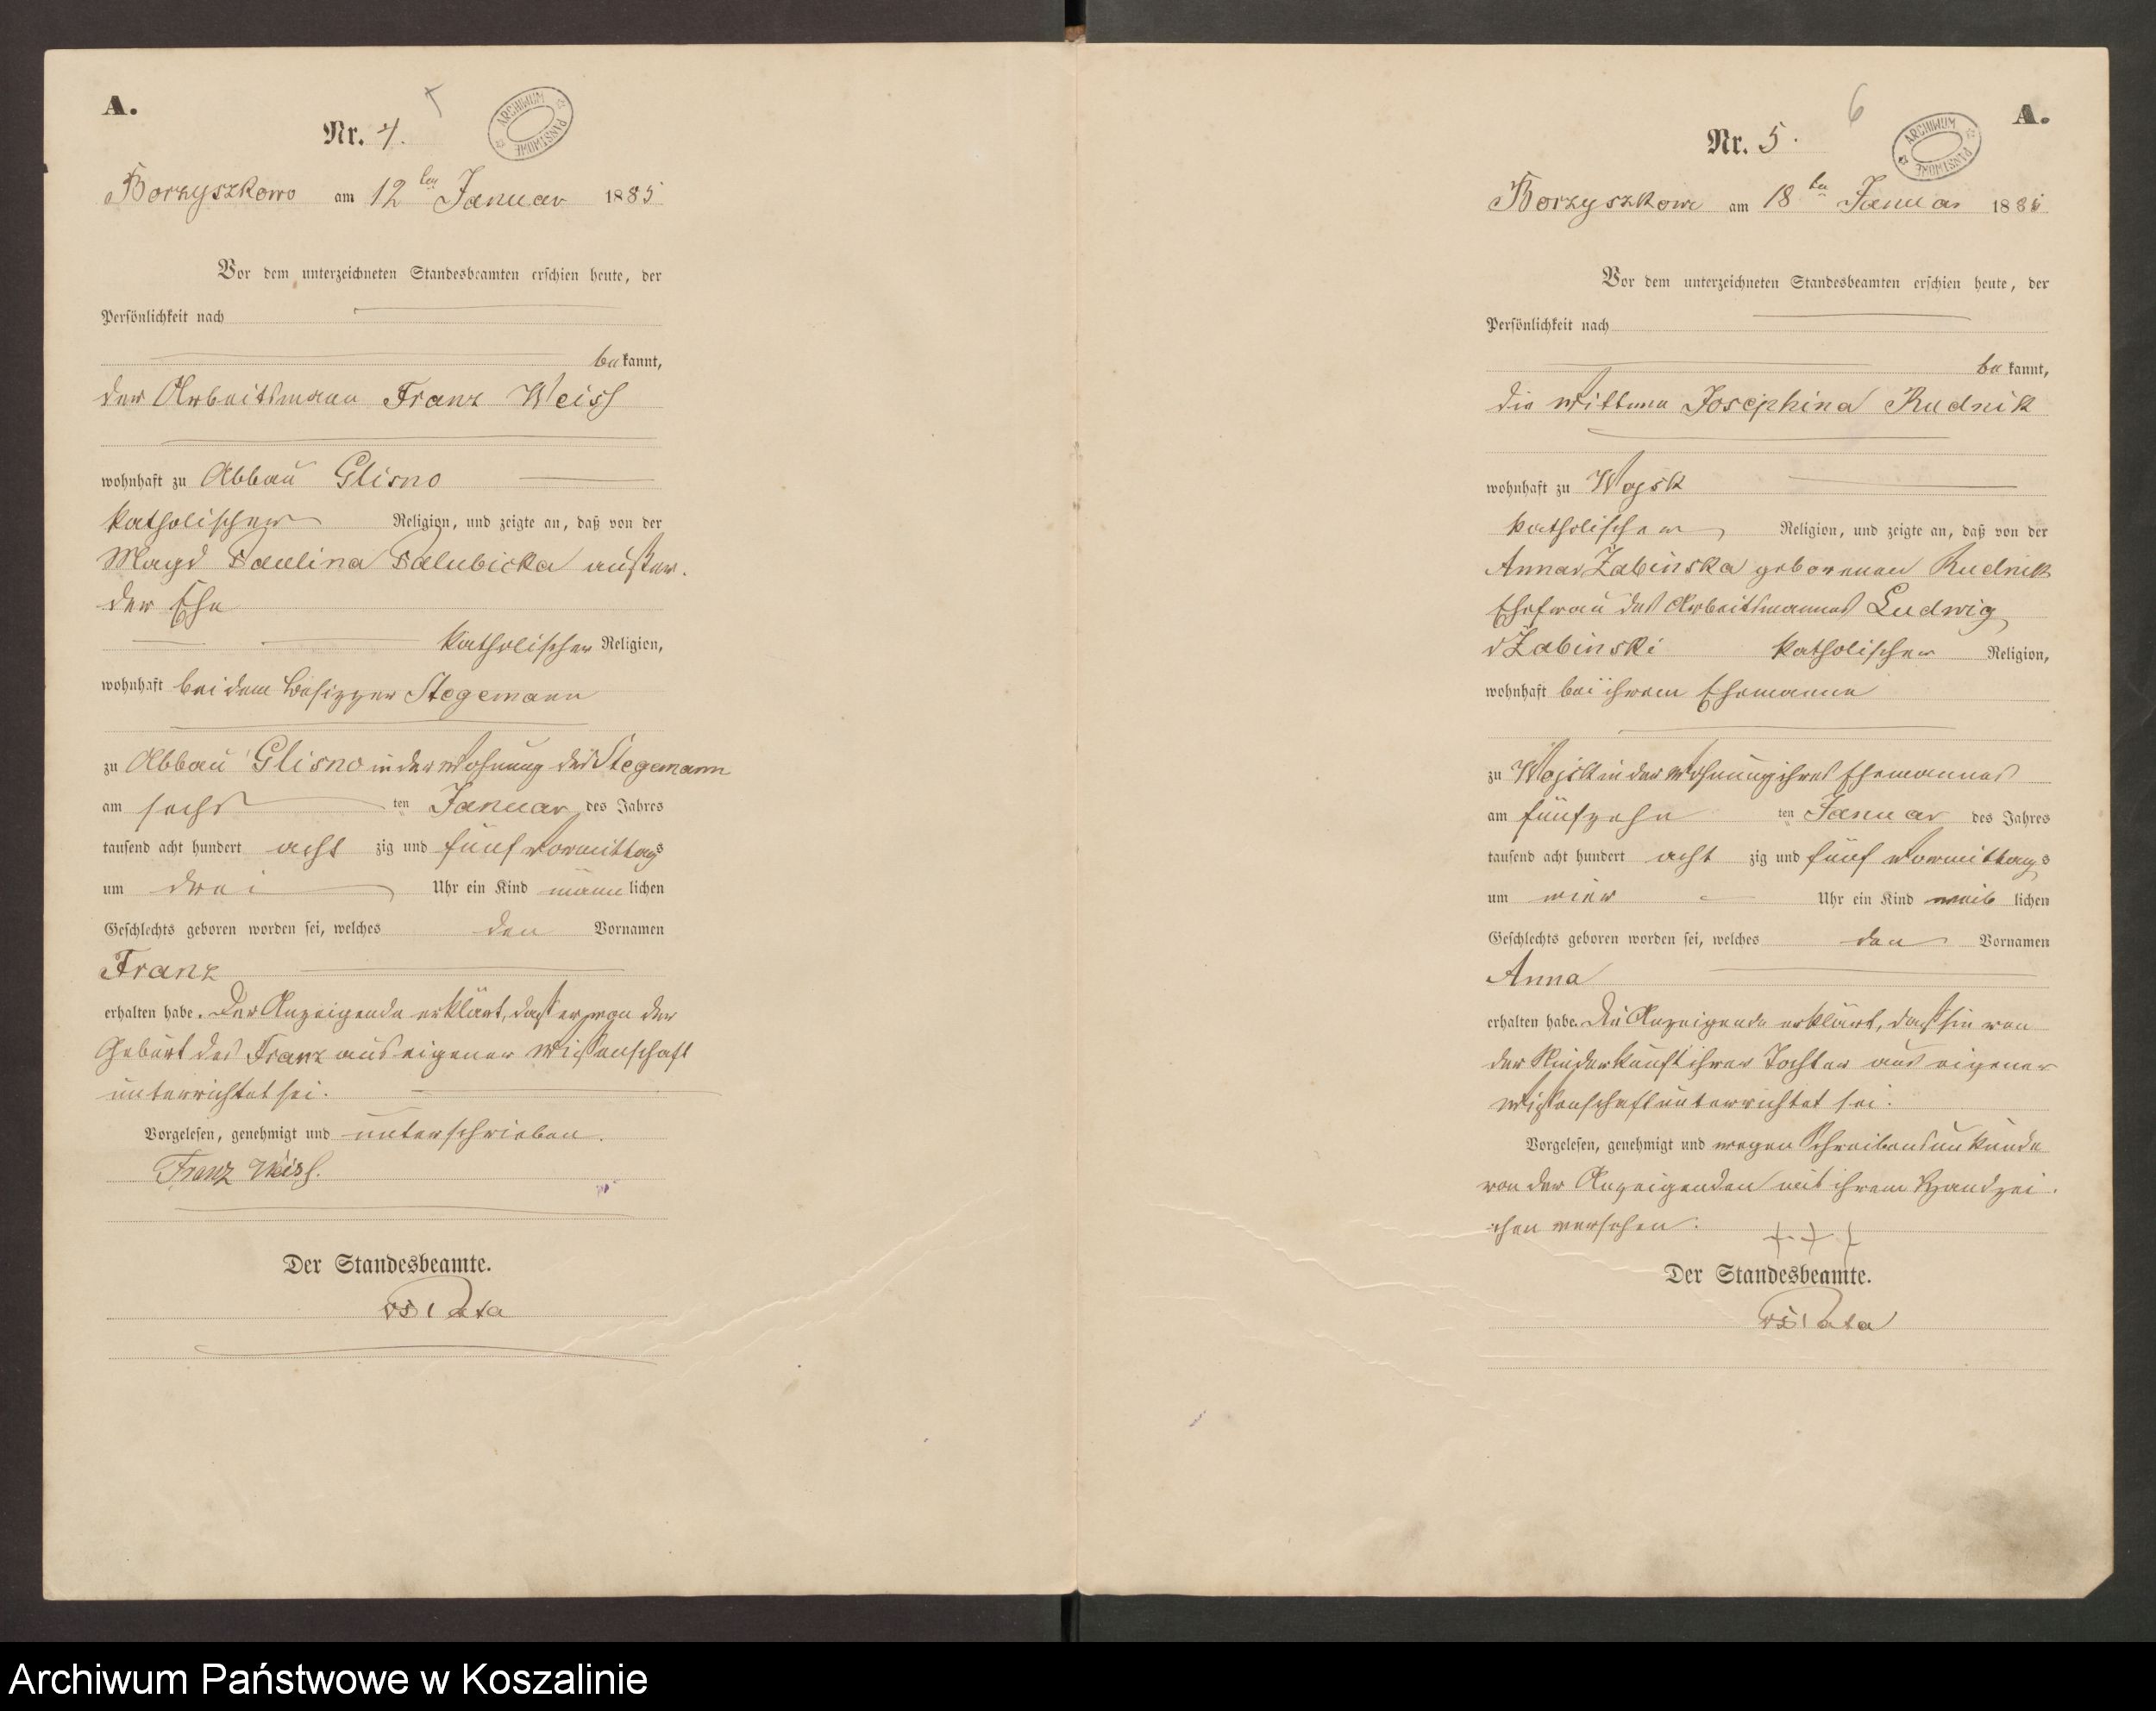 A.
Nr. 4.
ARCHIWUM PAŃSTWOWE
Borzyszkowo am 12ten Januar 1885
Vor dem unterzeichneten Standesbeamten erschien heute, der
Persönlichkeit nach
bekannt,
der Arbeitsmann Franz Weiss
wohnhaft zu Abbau Glisno
katholischer Religion, und zeigte an, daß von der
Magd Paulina Palubicka außer-
der Ehe
katholischer Religion,
wohnhaft bei dem Besitzer Stegemann
zu Abbau Glisno in der Wohnung des Stegemann
am sechsten Januar des Jahres
tausend acht hundert achtzig und fünf Vormittags
um drei Uhr ein Kind männlichen
Geschlechts geboren worden sei, welches den Vornamen
Franz
erhalten habe. Der Anzeigende erklärt, dass er von der
Geburt des Franz aus eigener Wissenschaft
unterrichtet sei.
Vorgelesen, genehmigt und unterschrieben.
Franz Weiss.
Der Standesbeamte.
6
A.
Nr. 5.
ARCHIWUM PAŃSTWOWE
Borzyszkowo am 18ten Januar 1885
Vor dem unterzeichneten Standesbeamten erschien heute, der
Persönlichkeit nach
bekannt,
die Wittwe Josephina Rudnik
wohnhaft zu Wojsk
katholischer Religion, und zeigte an, daß von der
Anna Żabinska geborenen Rudnik
Ehefrau des Arbeitsmannes Ludwig
Żabinski katholischer Religion,
wohnhaft bei ihrem Ehemanne
zu Wojsk in der Wohnung ihres Ehemannes
am fünfzehnten Januar des Jahres
tausend acht hundert achtzig und fünf Vormittags
um vier Uhr ein Kind weiblichen
Geschlechts geboren worden sei, welches den Vornamen
Anna
erhalten habe. Die Anzeigende erklärt, dass sie von
der Niederkunft ihrer Tochter aus eigener
Wissenschaft unterrichtet sei.
Vorgelesen, genehmigt und wegen Schreibensunkunde
von der Anzeigenden mit ihrem Handzei-
chen versehen.
+++
Der Standesbeamte.
Archiwum Państwowe w Koszalinie